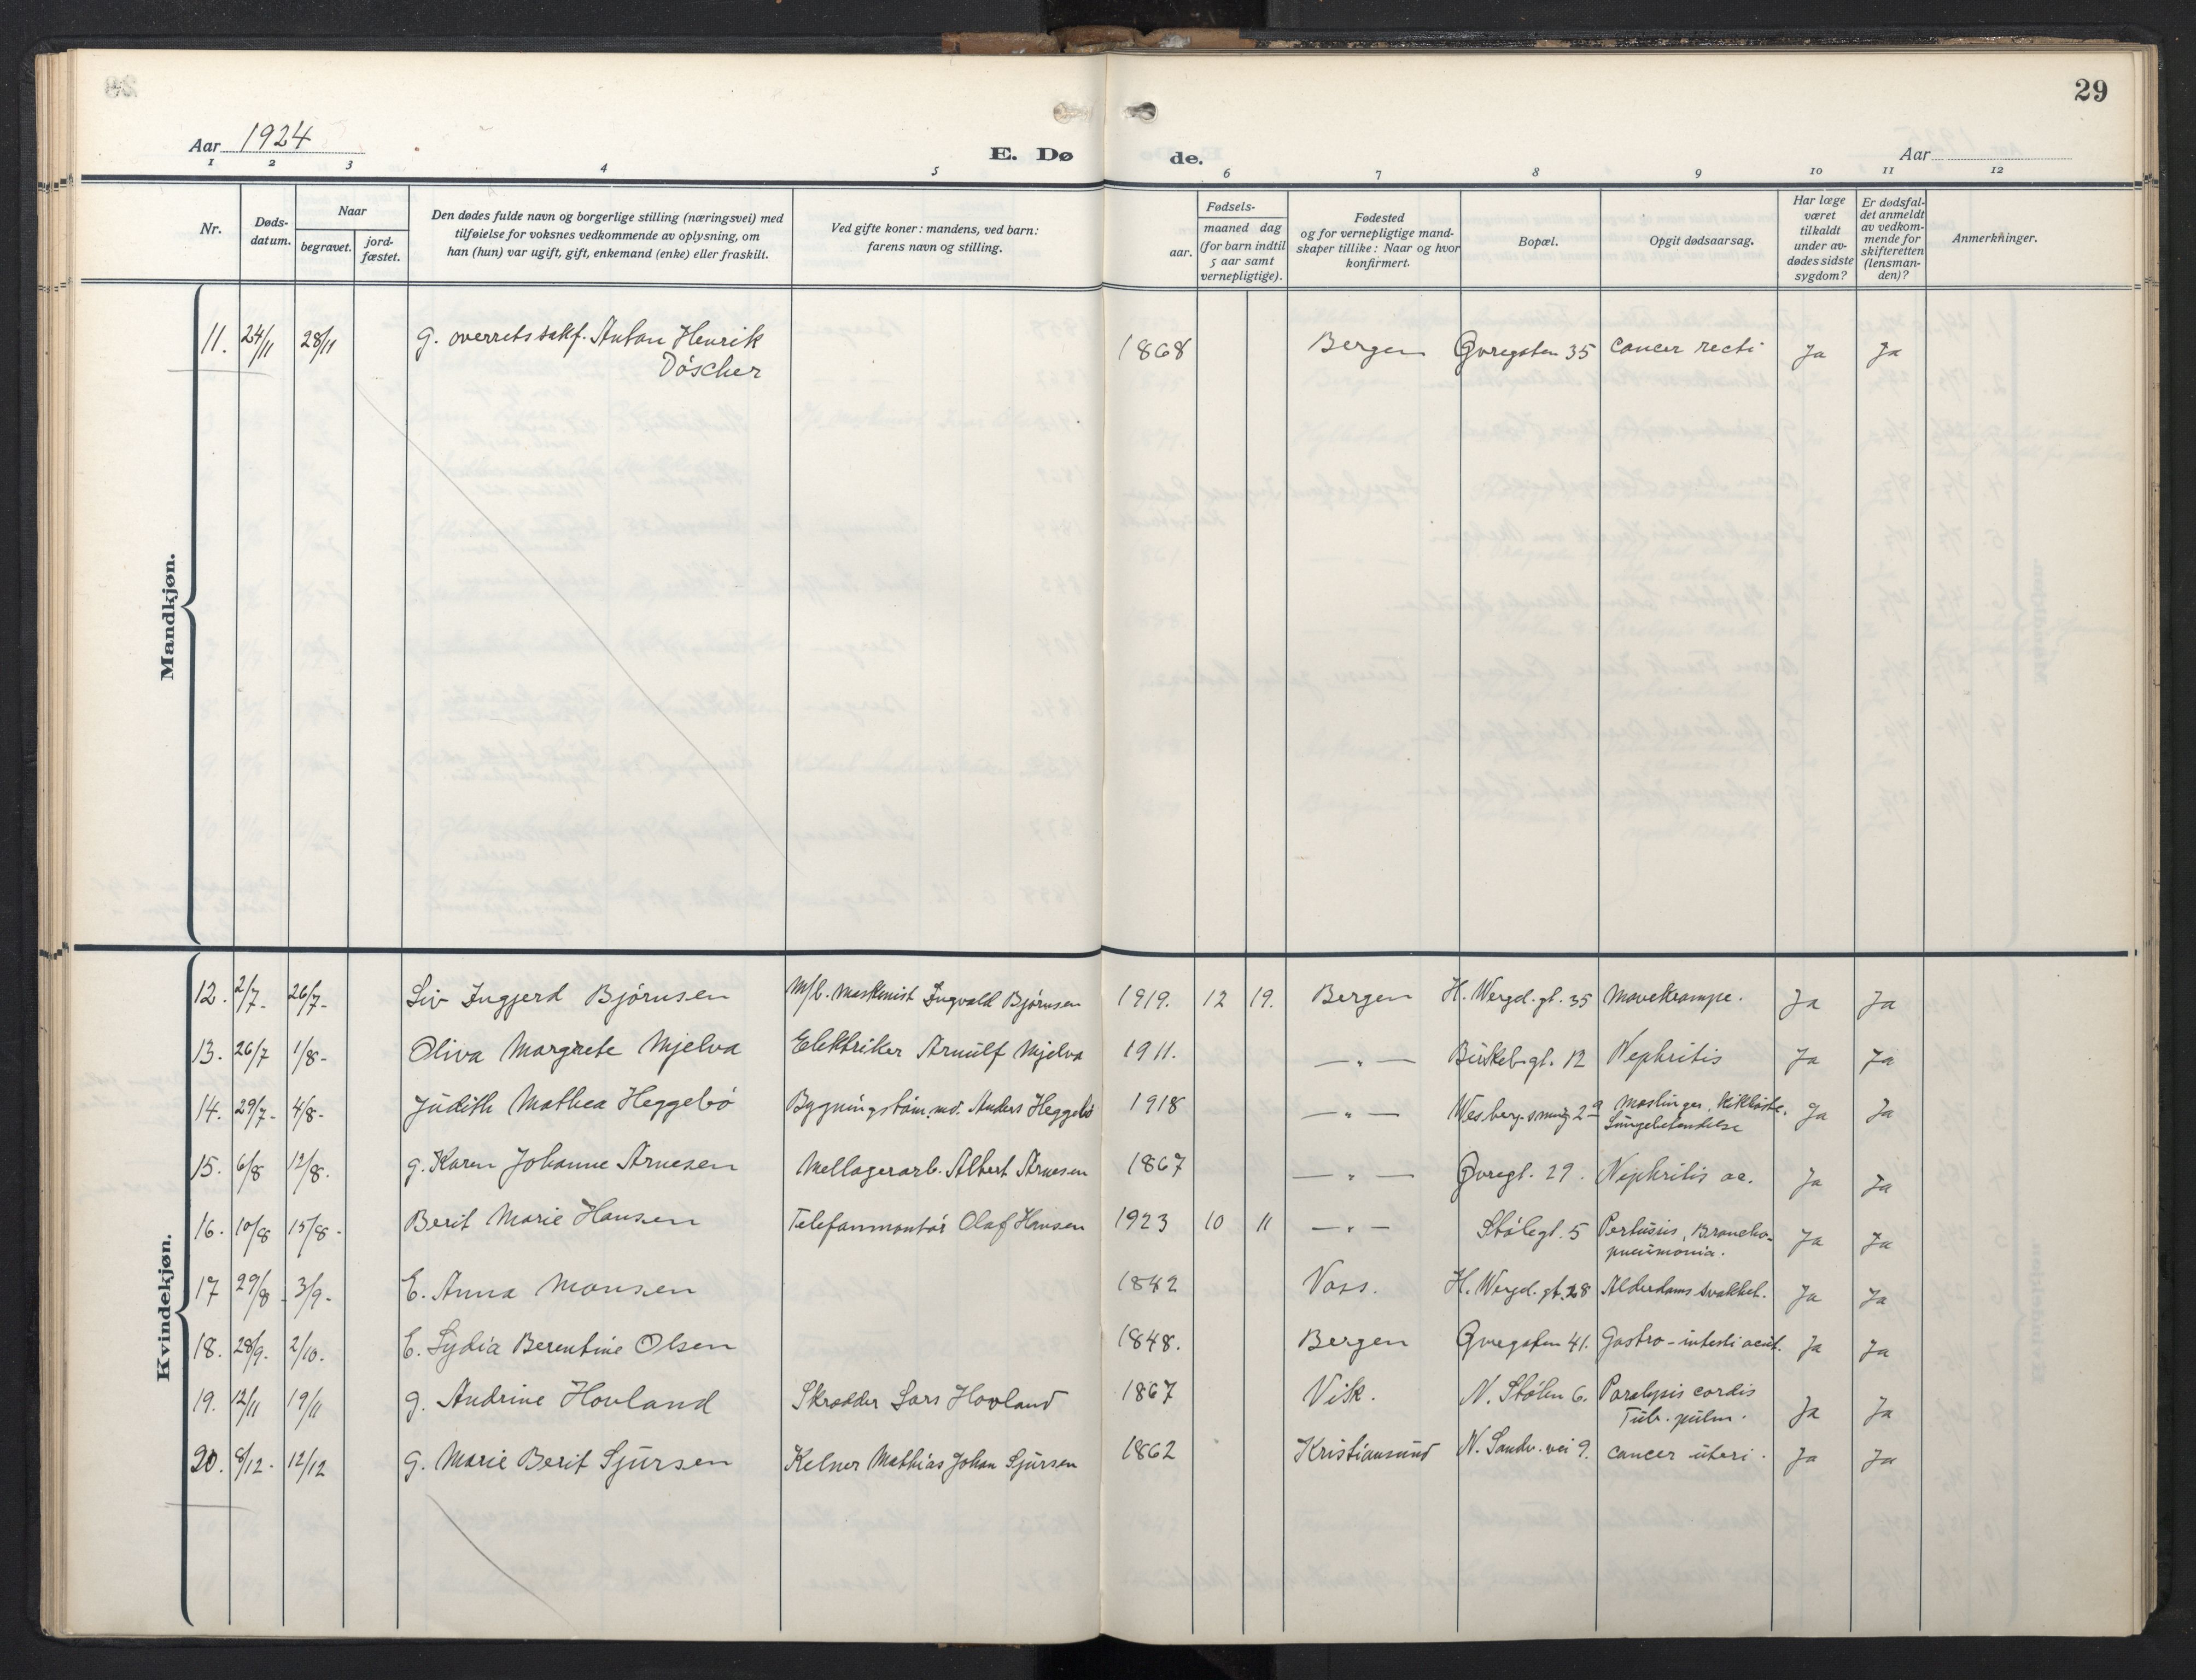 29
Aar 1924
E. Dø
de.
Aar
1 2 3 4 5 6 7 8 9 10 11 12
Nr.
Døds-
datum.
Naar
begravet.
jord-
fæstet.
Den dødes fulde navn og borgerlige stilling (næringsvei) med
tilføielse for voksnes vedkommende av oplysning, om
han (hun) var ugift, gift, enkemand (enke) eller fraskilt.
Ved gifte koner: mandens, ved barn:
farens navn og stilling.
Fødsels-
aar.
maaned dag
(for barn indtil
5 aar samt
vernepligtige).
Fødested
og for vernepligtige mand-
skaper tillike: Naar og hvor
konfirmert.
Bopæl.
Opgit dødsaarsag.
Har læge
været
tilkaldt
under av-
dødes sidste
sygdom?
Er dødsfal-
det anmeldt
av vedkom-
mende for
skifteretten
(lensman-
den)?
Anmerkninger.
Mandkjøn.
11. 24/11 28/11 g. overretssakf. Anton Henrik 1868 Bergen Øvregaten 35 cancer recti Ja Ja
Döscher
Kvindekjøn.
12. 2/7- 26/7- Liv Ingjerd Bjørnsen M/b. maskinist Ingvald Bjørnsen 1919. 12 19. Bergen H. Wergel. gt. 35 Mavekrampe. Ja Ja
13. 26/7 1/8- Oliva Margrete Mjelva Elektriker Arnulf Mjelva 1911. — " — Birkeb. gt. 12 Nephritis Ja Ja
14. 29/7- 4/8- Judith Mathea Heggebö Bygningstöm.ms. Anders Heggebö 1918 — " — Wesberg. smug 2a Meslinger, Kikhoste. Ja Ja
Lungebetendelse
15. 6/8 12/8. g. Karen Johanne Arnesen Mellagerarb. Albert Arnesen 1867 — " — Øvregt. 29. Nephritis ac. Ja Ja
16. 10/8 15/8- Berit Marie Hansen Telefonmontör Olaf Hansen 1923 10 11 — " — Stölegt. 5 Pertussis, Broncho- Ja Ja
pneumonia.
17 29/8- 3/9- E. Anna Monsen 1842 Voss. H. Wergel. gt. 28 Alderdomssvakhet. Ja Ja
18. 28/9. 2/10. E. Lydia Berentine Olsen 1848. Bergen Øvregaten 41. Gastro-intesti acut. Ja Ja
19. 12/11 19/11 g. Andrine Hovland Skrædder Lars Hovland 1867 Vik. N. Stölen 6. Paralysis cordis Ja Ja
Tub. pulm.
20. 8/12- 12/12 g. Marie Berit Sjursen Kelner Mathias Johan Sjursen 1862 Kristiansund N. Sandv. vei 9. cancer uteri. Ja Ja